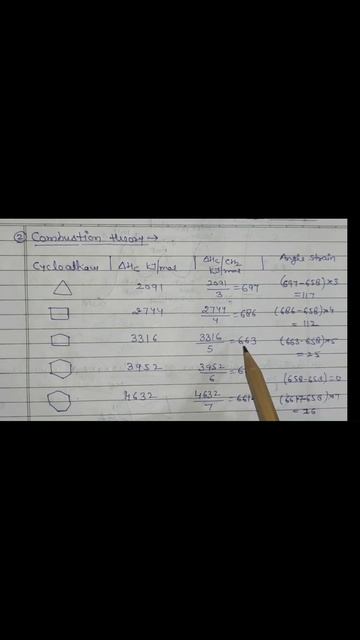 ② Combustion theory →
Cycloalkane | ΔHc KJ/mol | ΔHc/CH2 KJ/mol | Angle strain
2091 2091/3 = 697 (697-658)×3 = 117
2744 2744/4 = 686 (686-658)×4 = 112
3316 3316/5 = 663 (663-658)×5 = 25
3952 3952/6 = (658-658) = 0
4632 4632/7 = = 26